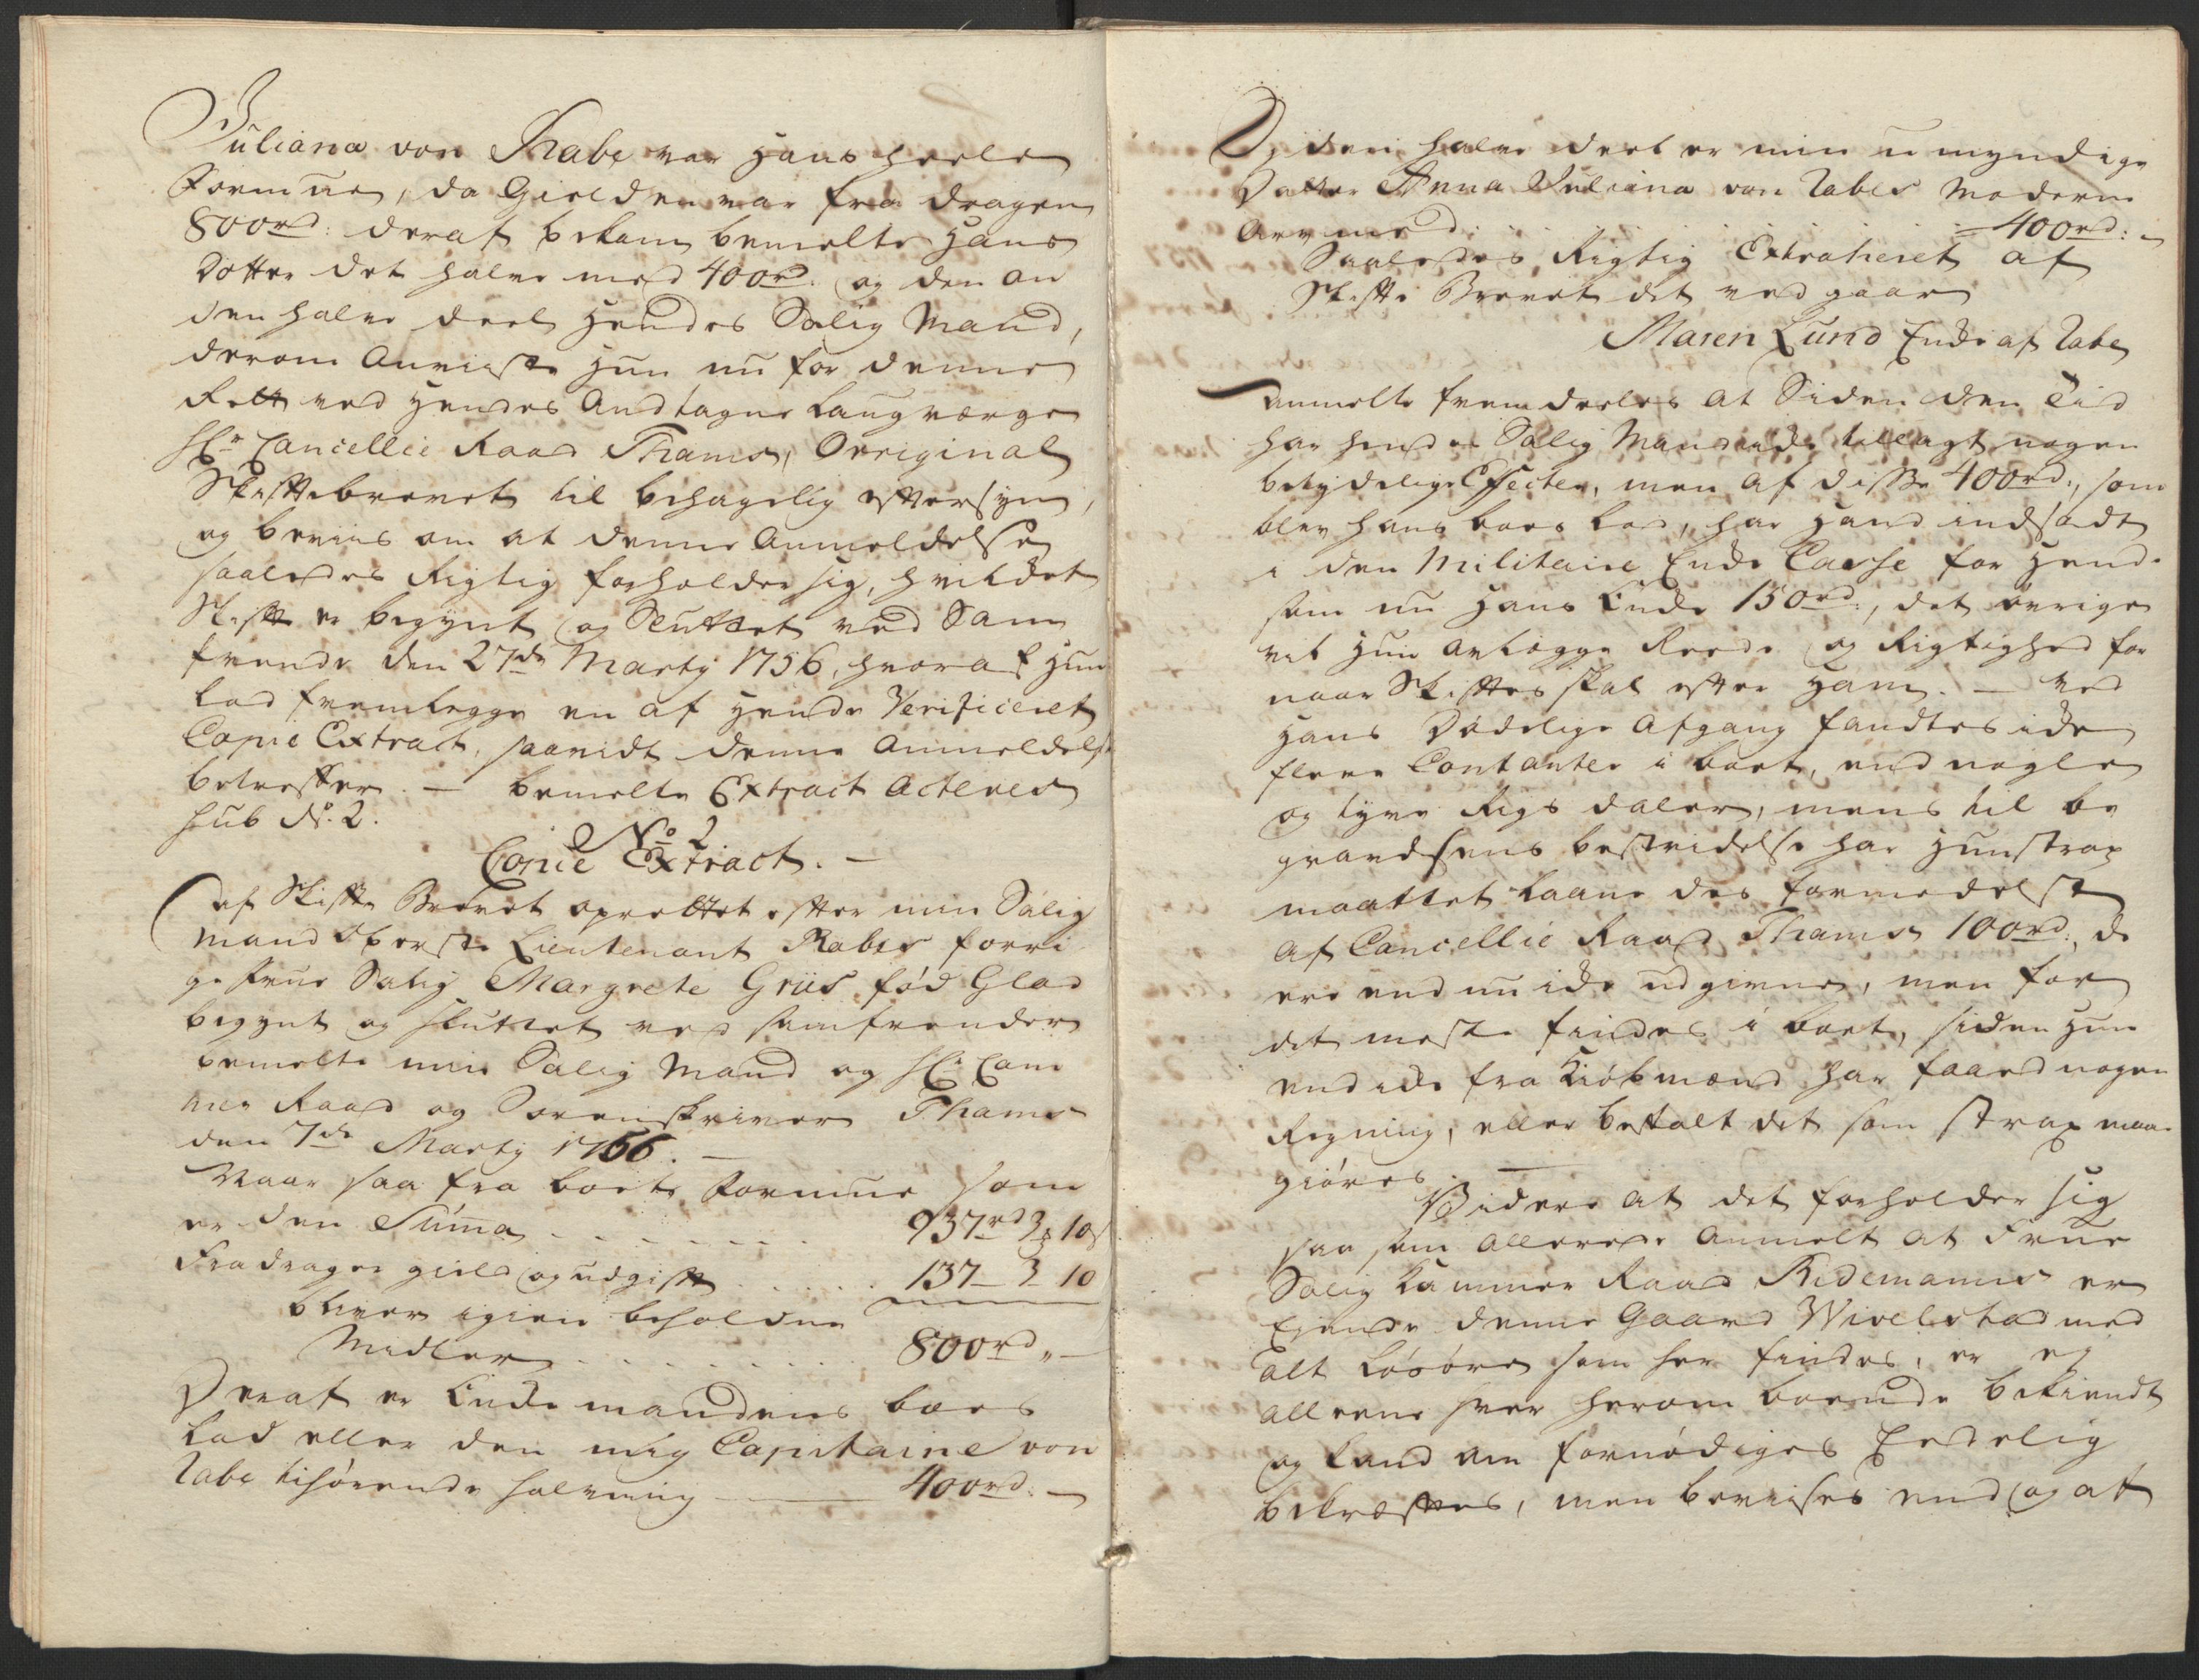 Juliana von Rabe var Hans heele
Formue, da Gielden var fra dragen
800rd: deraf bekom bemelte Hans
Dotter det halve med 400rd. og den an
den halve deel Hendes Salig Mand,
derom Anviiste Hun nu for denne
Rett ved Hendes Andtagne Laugværge
Hr. Cancellie Raad Thams, Original
Skiftebrevet til behagelig eftersyn,
og beviis om at denne Anmeldelse
saaledes Rigtig forholder sig, hvilket
Skifte er begynt og Sluttet ved Sam
frende den 27de Marty 1756, hvoraf Hun
lod fremlegge en af Hende Verificeret
Copie Extract, saavidt denne Anmeldelse
betreffer. — bemelte Extract Acteres
sub No. 2.
No 2
Copie Extract. —
af Skifte Brevet oprettet efter min Salig
Mand Oberste Lieutenant Rabes forri
ge Frue Salig Margrete Griis fød Glad
begynt og sluttet ved samfrender
bemelte min Salig Mand og Hr. Cam
mer Raad og Sorenskriver Thams
den 7de Marty 1756. —
Naar saa fra boets Formue som
er den Suma . . . . . . . 937rd 3 10s
Fradrages gield og udgift . . . . . 137 – 3 10
bliver igien beholdne
Midler . . . . . . . . 800rd „ —
Deraf er Enke mandens boes
Lod eller den mig Capitaine von
Rabe tilhørende halvning — 400rd. —
Og den halve deel er min umyndige
Datter Anna Juliana von Rabes Moderne
Arv med . . . . . . 400rd: „
Saaledes Rigtig Extraheret af
Skifte Brevet det vedgaar
Maren Lund Enke af Rabe
anmelte fremdeeles at Siden den Tid
har hendes Salig Mand icke tillagt nogen
betydelige Effecter, men af disse 400rd., som
blev hans boes lod, har Hand indsadt
i den Militaire Enke Casse for Hende
som nu Hans Enke 150rd:, det øvrige
vil Hun aflegge Rede og Rigtighed for
naar Skiftes skal efter Ham. — ved
Hans Dødelige Afgang fandtes icke
flere Contanter i boet, end nogle
og tyve Rigs daler, mens til be
gravelsens bestridelse har Hun strax
maattet laane des formedelst
af Cancellie Raad Thams 100rd:, de
ere end nu icke udgivne, men for
det meste findes i boet, siden Hun
end icke fra Kiøbmænd har faaed nogen
Regning, eller betalt det som strax maa
giøres. —
Videre at det forholder sig
saa som allerede Anmelt at Frue
Salig Kammer Raad Ridemanns er
Eiende denne Gaard Wivelstad med
alt Løsøre som her findes, er ej
alleene hver herom boende bekiendt
og kand om fornødiges Eedelig
bekreftes, men bevises end og at